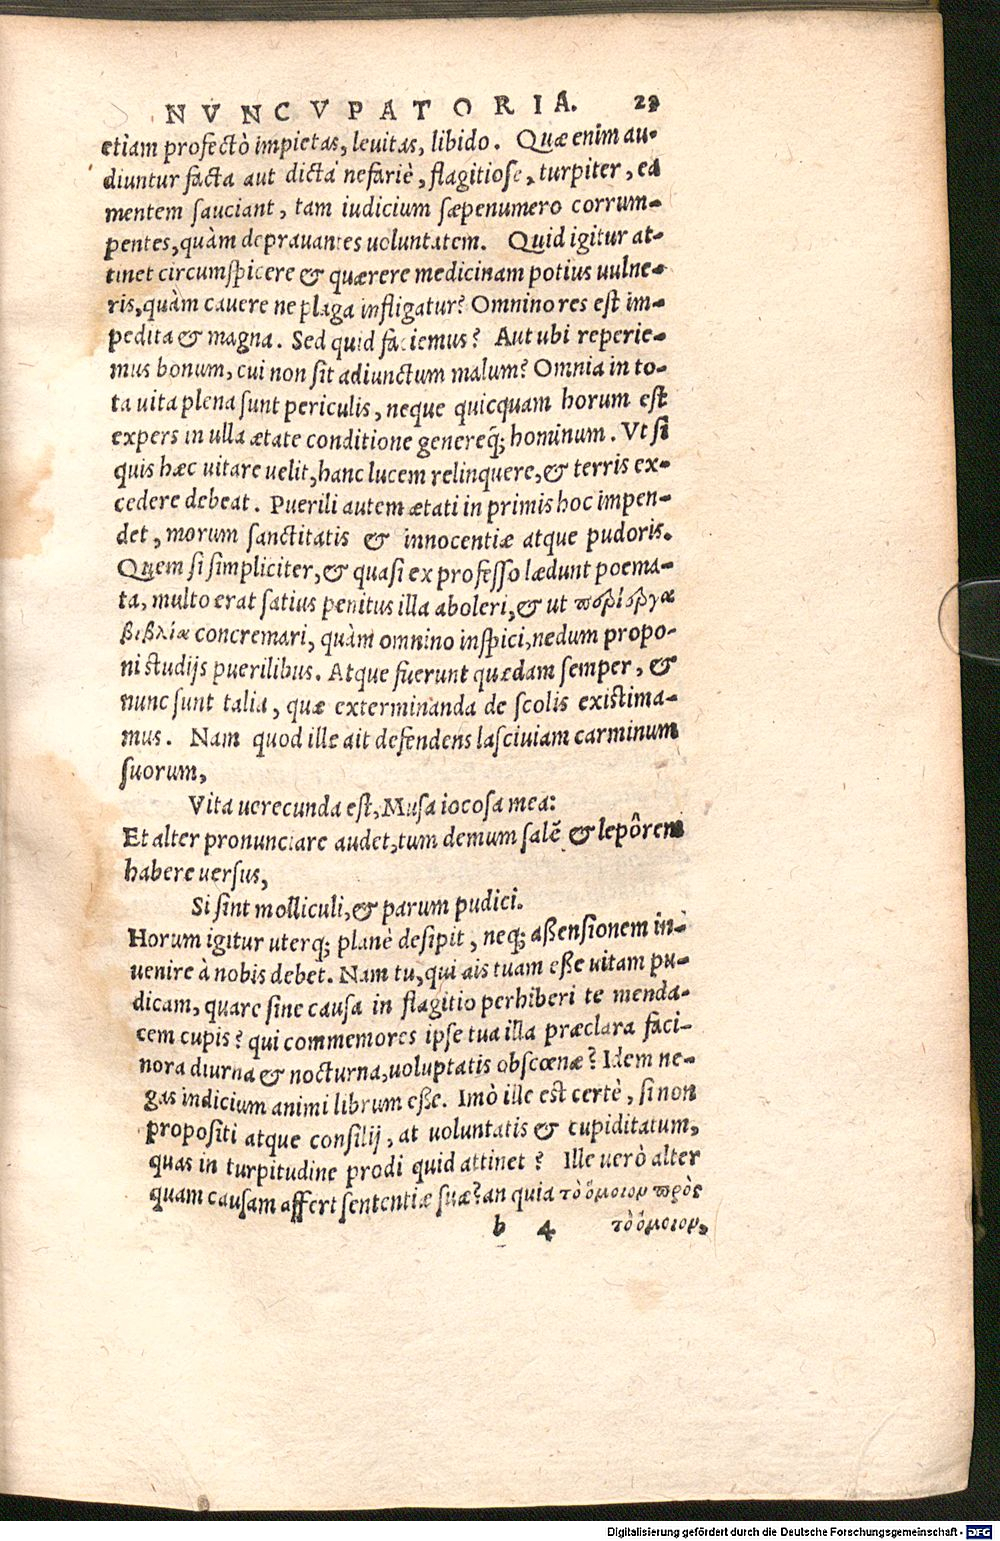 NVNCVPATORIA. 23
etiam profectò impietas, leuitas, libido. Quæ enim au-
diuntur facta aut dicta nefariè, flagitiose, turpiter, ea
mentem sauciant, tam iudicium sæpenumero corrum-
pentes, quàm deprauantes uoluntatem. Quid igitur at-
tinet circumspicere & quærere medicinam potius uulne-
ris, quàm cauere ne plaga infligatur? Omnino res est im-
pedita & magna. Sed quid faciemus? Aut ubi reperie-
mus bonum, cui non sit adiunctum malum? Omnia in to-
ta uita plena sunt periculis, neque quicquam horum est
expers in ulla ætate conditione genereq́; hominum. Vt si
quis hæc uitare uelit, hanc lucem relinquere, & terris ex-
cedere debeat. Puerili autem ætati in primis hoc impen-
det, morum sanctitatis & innocentiæ atque pudoris.
Quem si simpliciter, & quasi ex professo lædunt poema-
ta, multo erat satius penitus illa aboleri, & ut περίεργα
βιβλία concremari, quàm omnino inspici, nedum propo-
ni studijs puerilibus. Atque fuerunt quædam semper, &
nunc sunt talia, quæ exterminanda de scolis existima-
mus. Nam quod ille ait defendens lasciuiam carminum
suorum,
Vita uerecunda est, Musa iocosa mea:
Et alter pronunciare audet, tum demum salē & lepôrem
habere uersus,
Si sint molliculi, & parum pudici.
Horum igitur uterq; planè desipit, neq; aßensionem in-
uenire à nobis debet. Nam tu, qui ais tuam eße uitam pu-
dicam, quare sine causa in flagitio perhiberi te menda-
cem cupis? qui commemores ipse tua illa præclara faci-
nora diurna & nocturna, uoluptatis obscœnæ? Idem ne-
gas indicium animi librum eße. Imò ille est certè, si non
propositi atque consilij, at uoluntatis & cupiditatum,
quas in turpitudine prodi quid attinet? Ille uerò alter
quam causam affert sententiæ suæ? an quia τὸ ὅμοιον πρὸς
b 4 τὸ ὅμοιον,
Digitalisierung gefördert durch die Deutsche Forschungsgemeinschaft - DFG